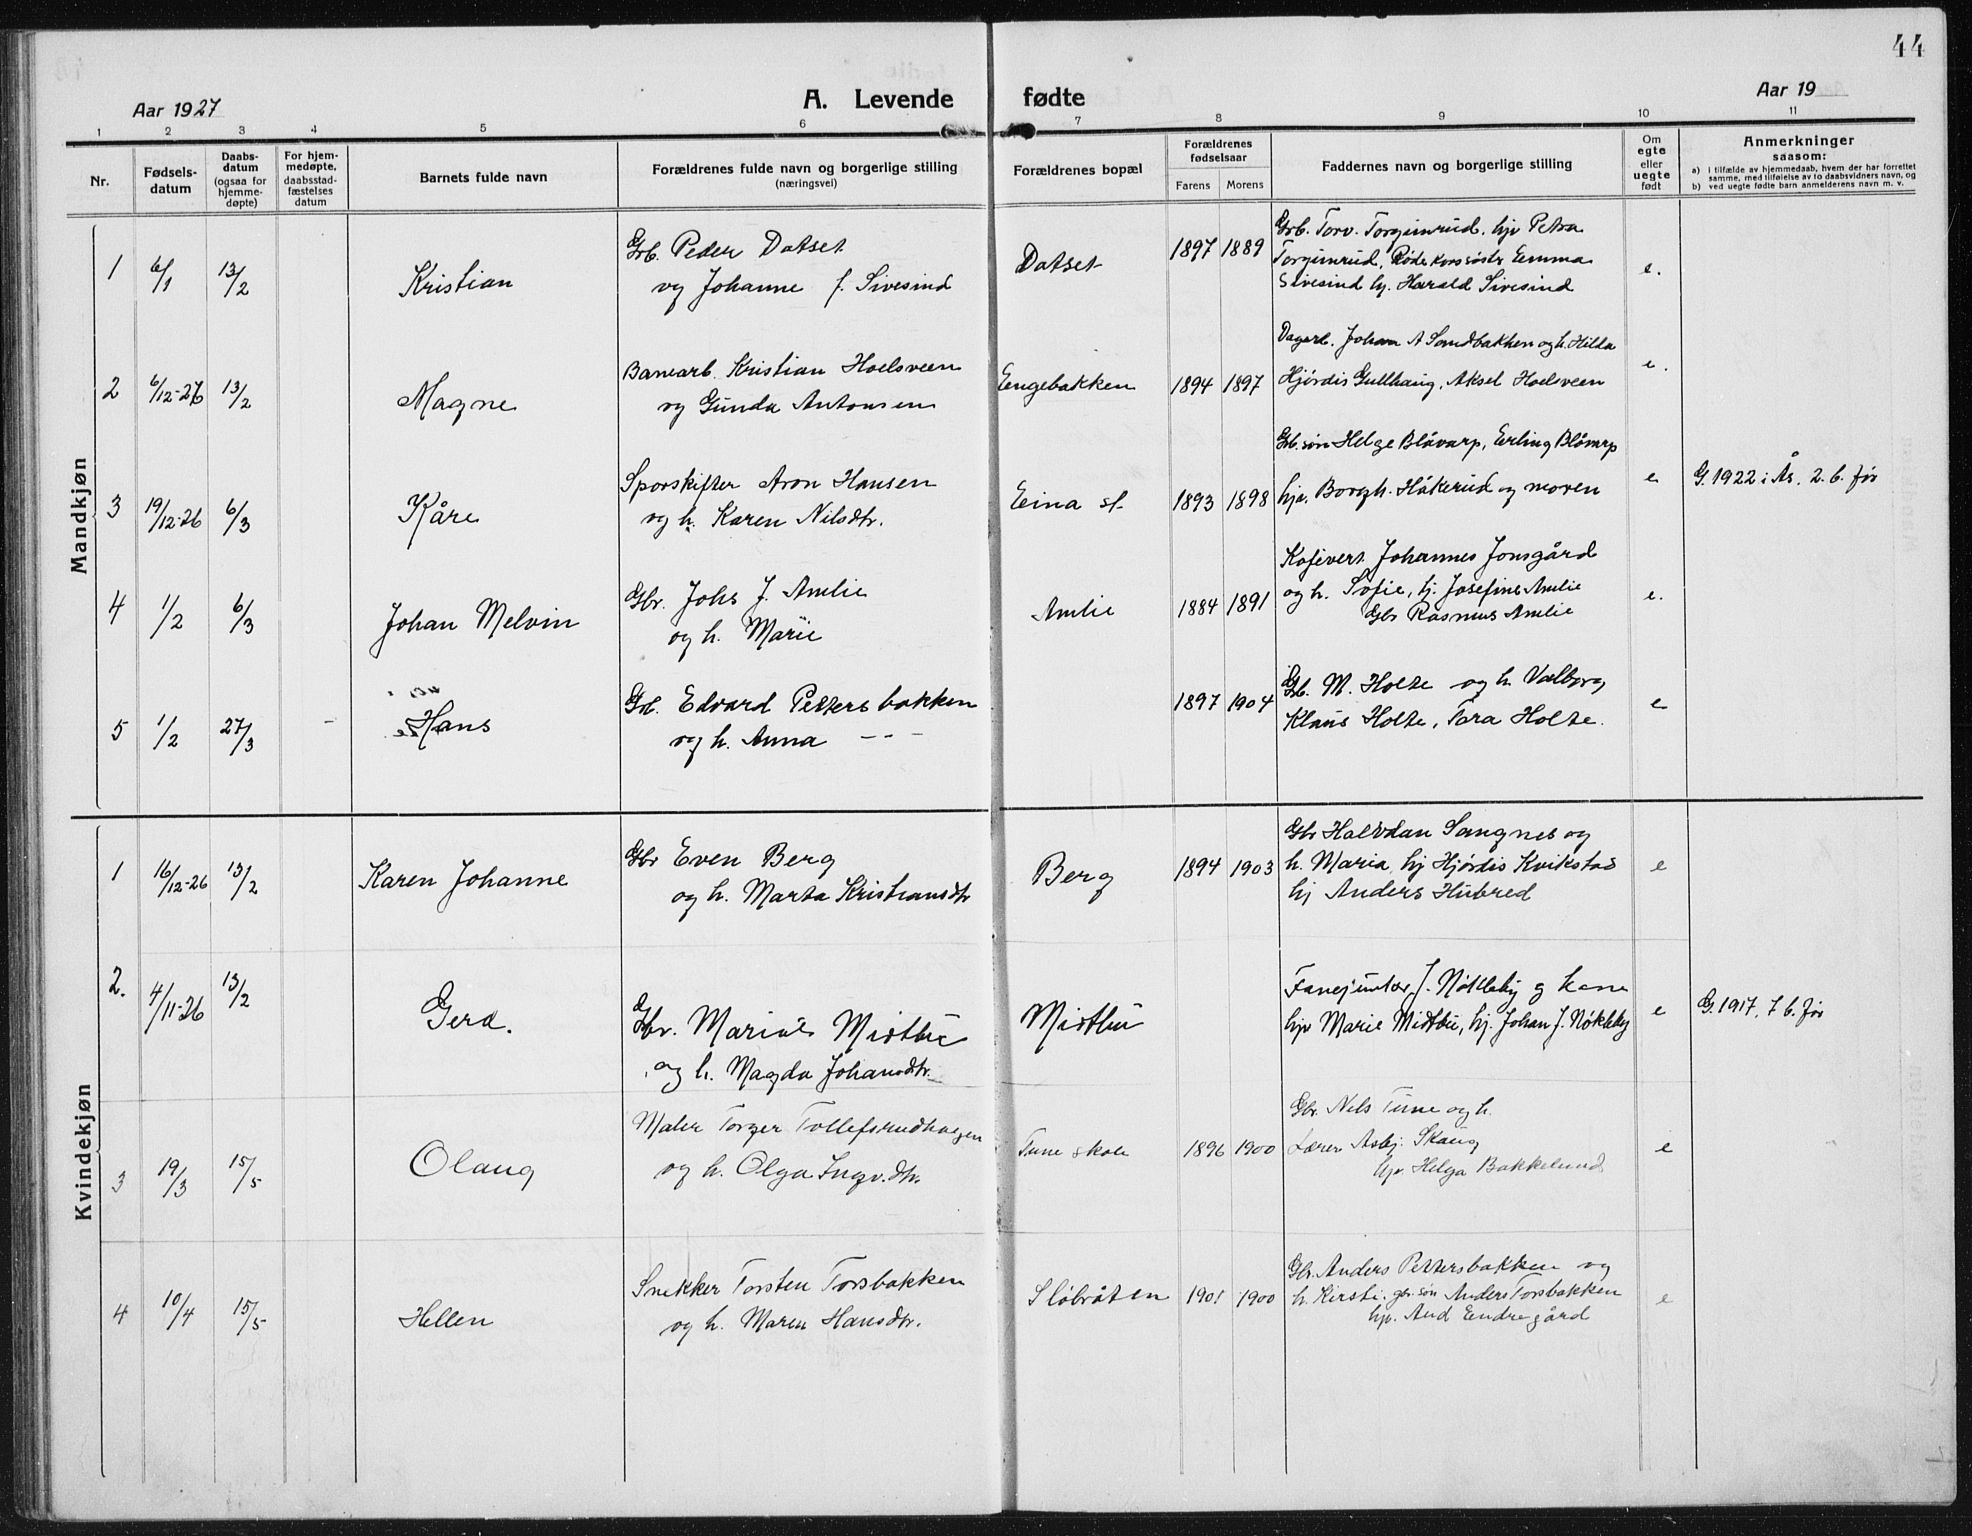 44
Aar 1927
A. Levende fødte
Aar 19
1 2 3 4 5 6 7 8 9 10 11
Nr.
Fødsels-
datum
Daabs-
datum
(ogsaa for
hjemme-
døpte)
For hjem-
medøpte,
daabsstad-
fæstelses
datum
Barnets fulde navn
Forældrenes fulde navn og borgerlige stilling
(næringsvei)
Forældrenes bopæl
Forældrenes
fødselsaar
Farens Morens
Faddernes navn og borgerlige stilling
Om
egte
eller
uegte
født
Anmerkninger
saasom:
a) i tilfælde av hjemmedaab, hvem der har forrettet
samme, med tilføielse av to daabsvidners navn, og
b) ved uegte fødte barn anmelderens navn m. v.
Mandkjøn
1 6/1 13/2 Kristian
Grb. Peder Datset
og Johanne f. Sivesind
Datset 1897 1889
Grb. Torv. Torgimrud, hjv Petra
Torgimrud, Røde korssøster Emma
Sivesind hj. Harald Sivesind
e.
2 6/12-26 13/2 Magne
Banearb. Kristian Hoelsveen
og Gunda Antonsen
Engebakken 1894 1897
Dagarb. Johan A Sandbakken og h. Hilda
Hjørdis Gullhaug, Aksel Hoelsveen
e.
3 19/12-26 6/3 Kåre
Sporskifter Aron Hansen
og h. Karen Nilsdtr.
Eina st 1893 1898
Grb.søn Helge Blåvarp, Erling Blåvarp
hjv. Borgh. Håkerud og moren
e
G. 1922 i Ås. 2. b. før
4 1/2 6/3 Johan Melvin
Gbr. Johs J. Amlie
og h. Marie
Amlie 1884 1891
Kafevert Johannes Jonsgård
og h. Sofie, hj. Josefine Amlie
Gbr Rasmus Amlie
e.
5 1/2 27/3 - Hans
Grb. Edvard Pettersbakken
og h. Anna - - -
1897 1904
Grb. M. Holte og h. Valborg
Klaus Holte, Tora Holte.
e
Kvindekjøn
1 16/12-26 13/2 Karen Johanne
Gbr Even Berg
og h. Marta Kristiansdtr
Berg 1894 1903
Gbr Halvdan Sangnes og
h. Maria, hj Hjørdis Kvikstad
hj Anders Hubred
e
2. 4/11-26 13/2 Gerd.
Gbr. Marius Midtbu
og h. Magda Johansdtr.
Midtbu
Fanejunker J. Nøkleby og kone
hjv Marie Midtbu, hj. Johan J. Nøkleby
e
G. 1917, 7 b. før
3 19/3 15/5 Olaug
Maler Torger Tollefsrudhagen
og h. Olga Ingv.dtr.
Tune skole 1896 1900
Gbr. Nils Tune og h.
Lærer Asbj. Skaug
hjv. Helga Bakkelund
e
4 10/4 15/5 Hellen
Snekker Torsten Torsbakken
og h. Maren Hansdtr.
Sløbråten 1901 1900
Gbr. Anders Pettersbakken og
h. Kirsti. gbr.søn Anders Torsbakken
hjv. Aud Endregård
e